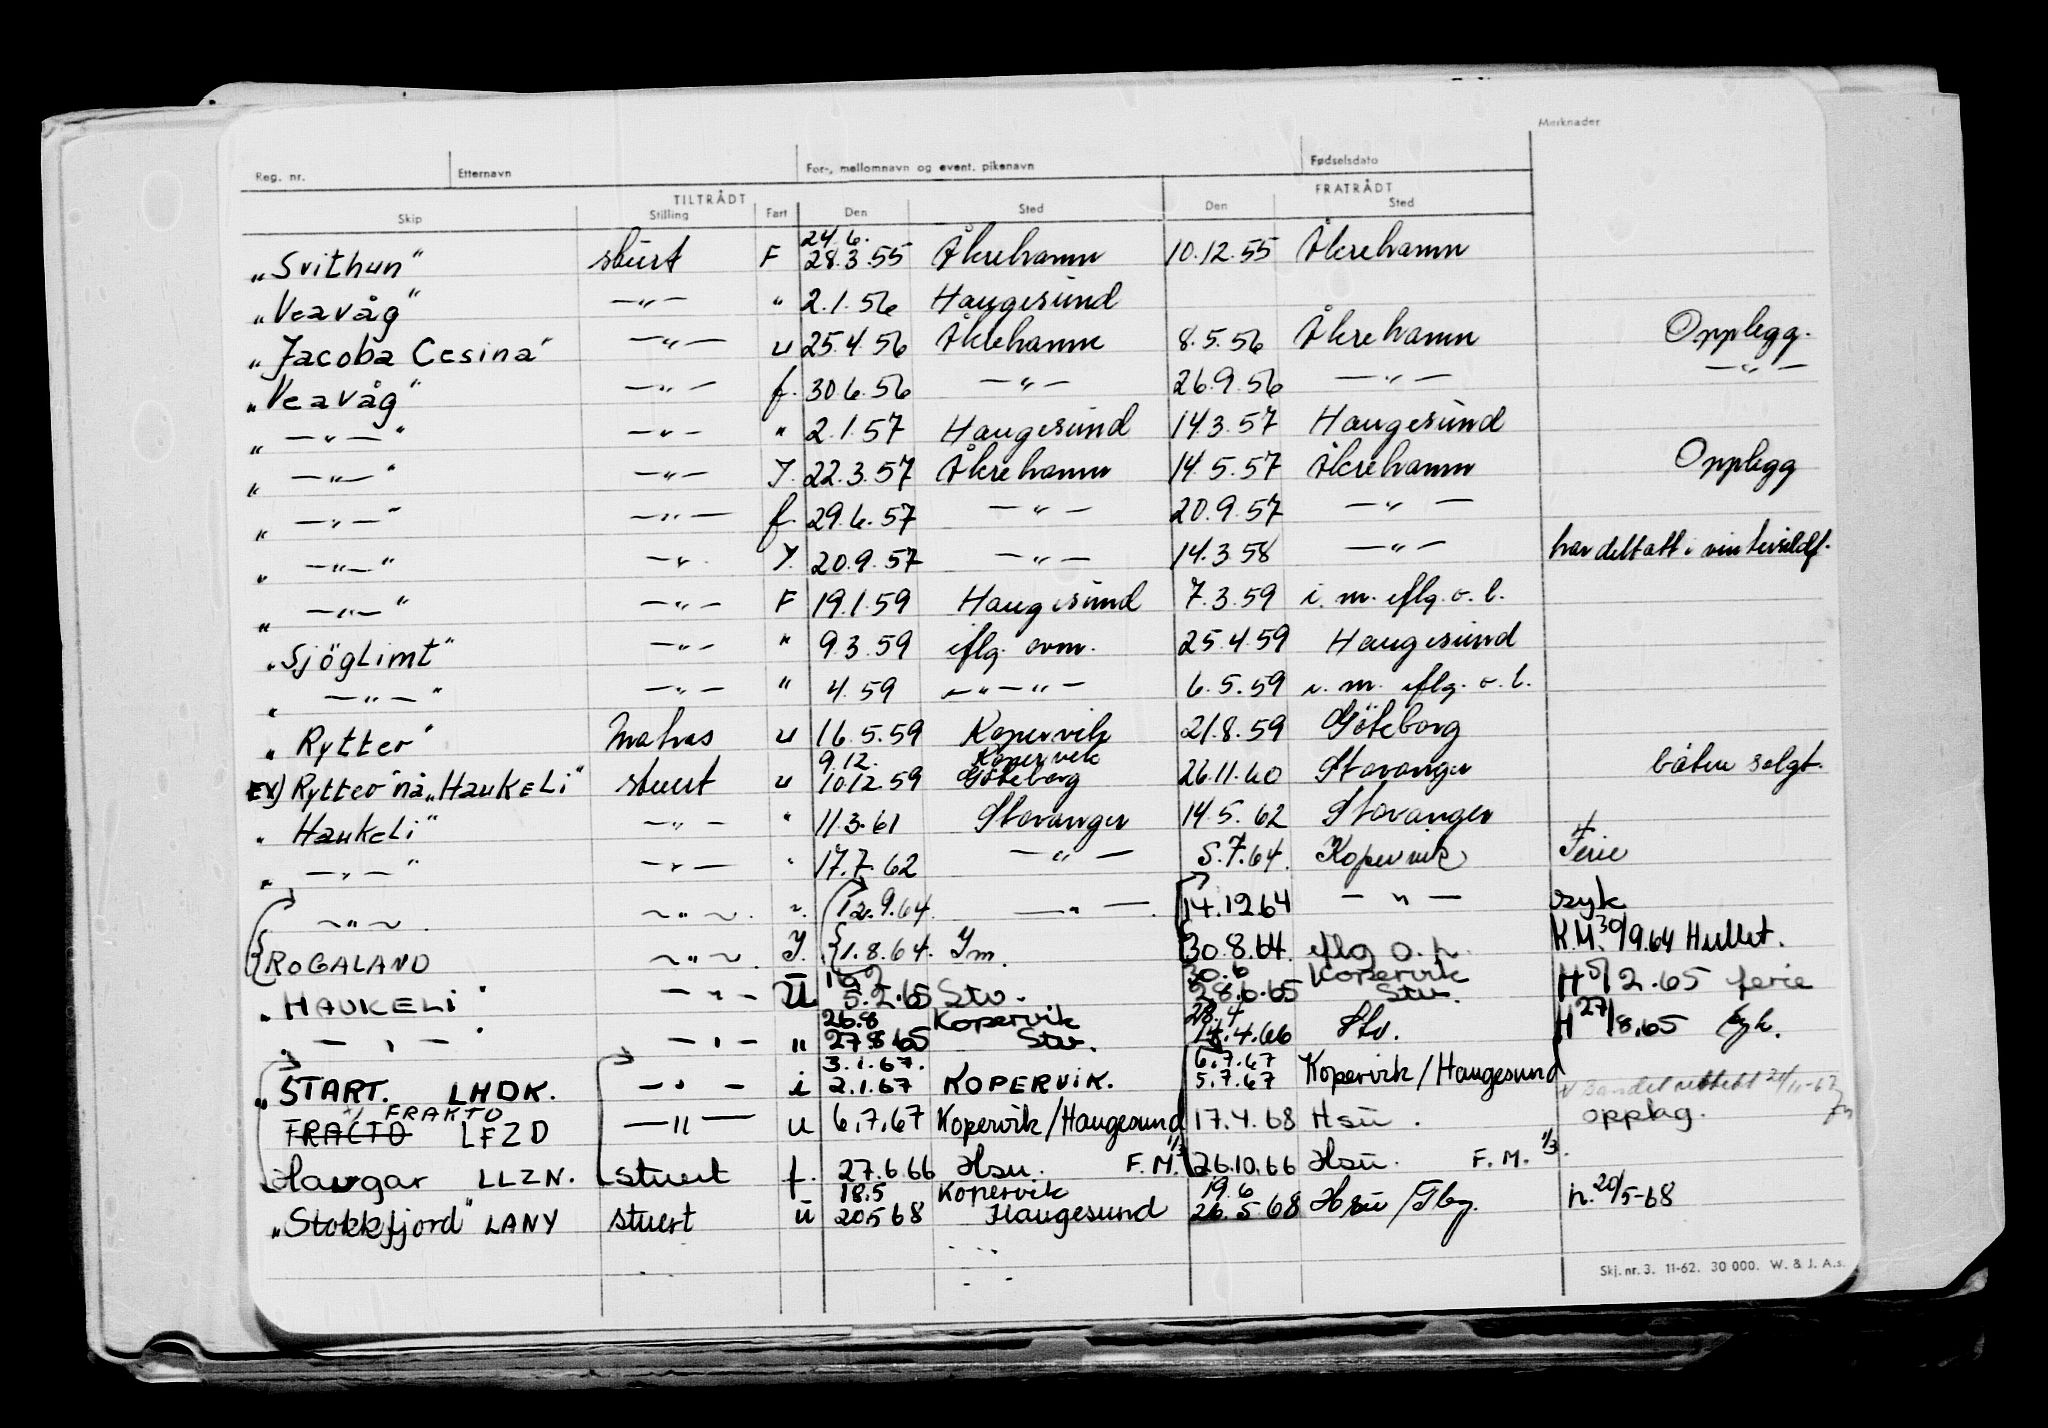 Merknader
Reg. nr. Etternavn For-, mellomnavn og event. pikenavn Fødselsdato
TILTRÅDT FRATRÅDT
Skip Stilling Fart Den Sted Den Sted
24.6.
„Svithun“ stuert F 28.3.55 Åkrehamn 10.12.55 Åkrehamn
„Veavåg“ —„— „ 2.1.56 Haugesund
„Jacoba Cesina“ —„— u 25.4.56 Åkrehamn 8.5.56 Åkrehamn Opplegg.
„Veavåg“ —„— f. 30.6.56 —„— 26.9.56 —„— —„—
„ —„— “ —„— „ 2.1.57 Haugesund 14.3.57 Haugesund
„ —„— “ —„— I. 22.3.57 Åkrehamn 14.5.57 Åkrehamn Opplegg
„ —„— “ —„— f. 29.6.57 —„— 20.9.57 —„—
„ —„— “ —„— I. 20.9.57 —„— 14.3.58 —„— har deltatt i vintersildf.
„ —„— “ —„— F 19.1.59 Haugesund 7.3.59 i. m. iflg. o. l.
„Sjöglimt“ —„— „ 9.3.59 iflg. ovm. 25.4.59 Haugesund
„ —„— “ —„— „ 4.59 —„—„— 6.5.59 i. m. iflg. o. l.
„Rytter“ Matros u 16.5.59 Kopervik 21.8.59 Göteborg
9.12. Kopervik
EX) Rytter nå „Haukeli“ stuert u 10.12.59 Göteborg 26.11.60 Stavanger båten solgt.
„Haukeli“ —„— „ 11.3.61 Stavanger 14.5.62 Stavanger
„ —„— “ —„— „ 17.7.62 —„— 5.7.64. Kopervik Ferie
~„~ ~„~. ~. 12.9.64. —„— 14.12.64 —„— syk
ROGALAND ~„~. I. 1.8.64. Im. 30.8.64. iflg o. l. K.M. 30/9.64 Hullet.
30.6 Kopervik
„HAUKELI“ —„— U 5.2.65 Stv. 28.6.65 Stv. H 5/2.65 ferie
26.8 Kopervik 28.4
„ —„— “ —„— „ 27.8.65 Stv. 18.4.66 Stv. H 27/8.65 syk.
3.1.67. 6.7.67
„START. LHDK. —„— i 2.1.67 KOPERVIK. 5.7.67 Kopervik/Haugesund
FRAKTO
FRACTO LFZD —„— u 6.7.67 Kopervik/Haugesund 17.4.68 Hsu. opplag.
Havgar LLZN. stuert f. 27.6.66 Hsu. F.M. 1/3 26.10.66 Hsu. F.M. 1/3.
18.5 Kopervik 19.6
„Stokkfjord“ LANY stuert u 20.5.68 Haugesund 26.5.68 Hsu/Tbg. h. 20/5-68
Skj. nr. 3. 11-62. 30 000. W. & J. A.s.